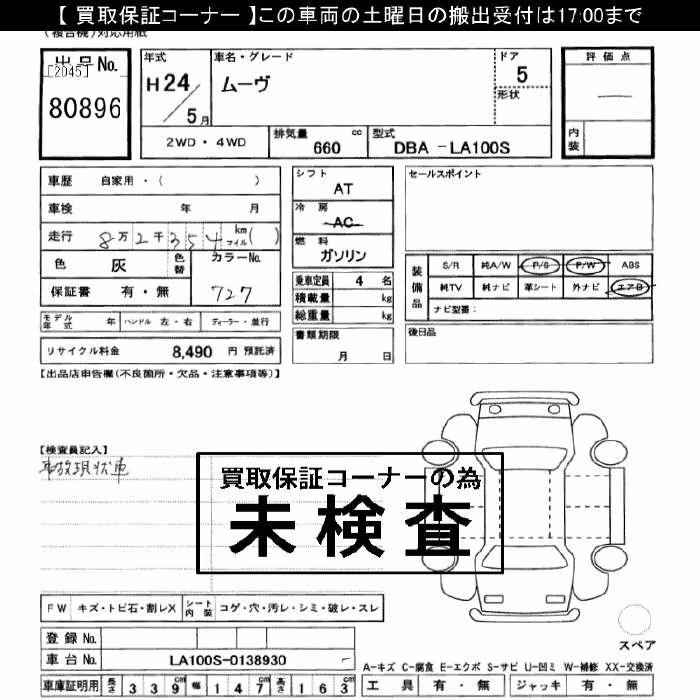 【 買取保証コーナー 】この車両の土曜日の搬出受付は17:00まで
(複合機)対応用紙
出品No.
[2045]
80896
年式
H24/5月
車名・グレード
ムーヴ
ドア
5
形状
2WD・4WD
排気量 660 cc
型式 DBA -LA100S
評価点
―
内装
車歴 自家用・( )
車検 年 月
走行 8万2千354 km マイル( )
色 灰 色替
カラーNo.
727
保証書 有・無
モデル年式 年 ハンドル 左・右 ディーラー・並行
リサイクル料金 8,490 円 預託済
シフト
AT
冷房
AC
燃料
ガソリン
乗車定員 4 名
積載量 kg
総重量 kg
書類期限
月 日
セールスポイント
装備品
S/R 純A/W P/S P/W ABS
純TV 純ナビ 革シート 外ナビ エアB
ナビ型番:
後日品
【出品店申告欄(不良箇所・欠品・注意事項等)】
【検査員記入】
事故現状車
買取保証コーナーの為
未検査
FW キズ・トビ石・割レX シート内装 コゲ・穴・汚レ・シミ・破レ・スレ
登録No.
車台No. LA100S-0138930
車庫証明用 長さ 339cm 幅 147cm 高さ 163cm
スペア
A-キズ C-腐食 E-エクボ S-サビ U-凹ミ W-補修 XX-交換済
工具 有・無 ジャッキ 有・無